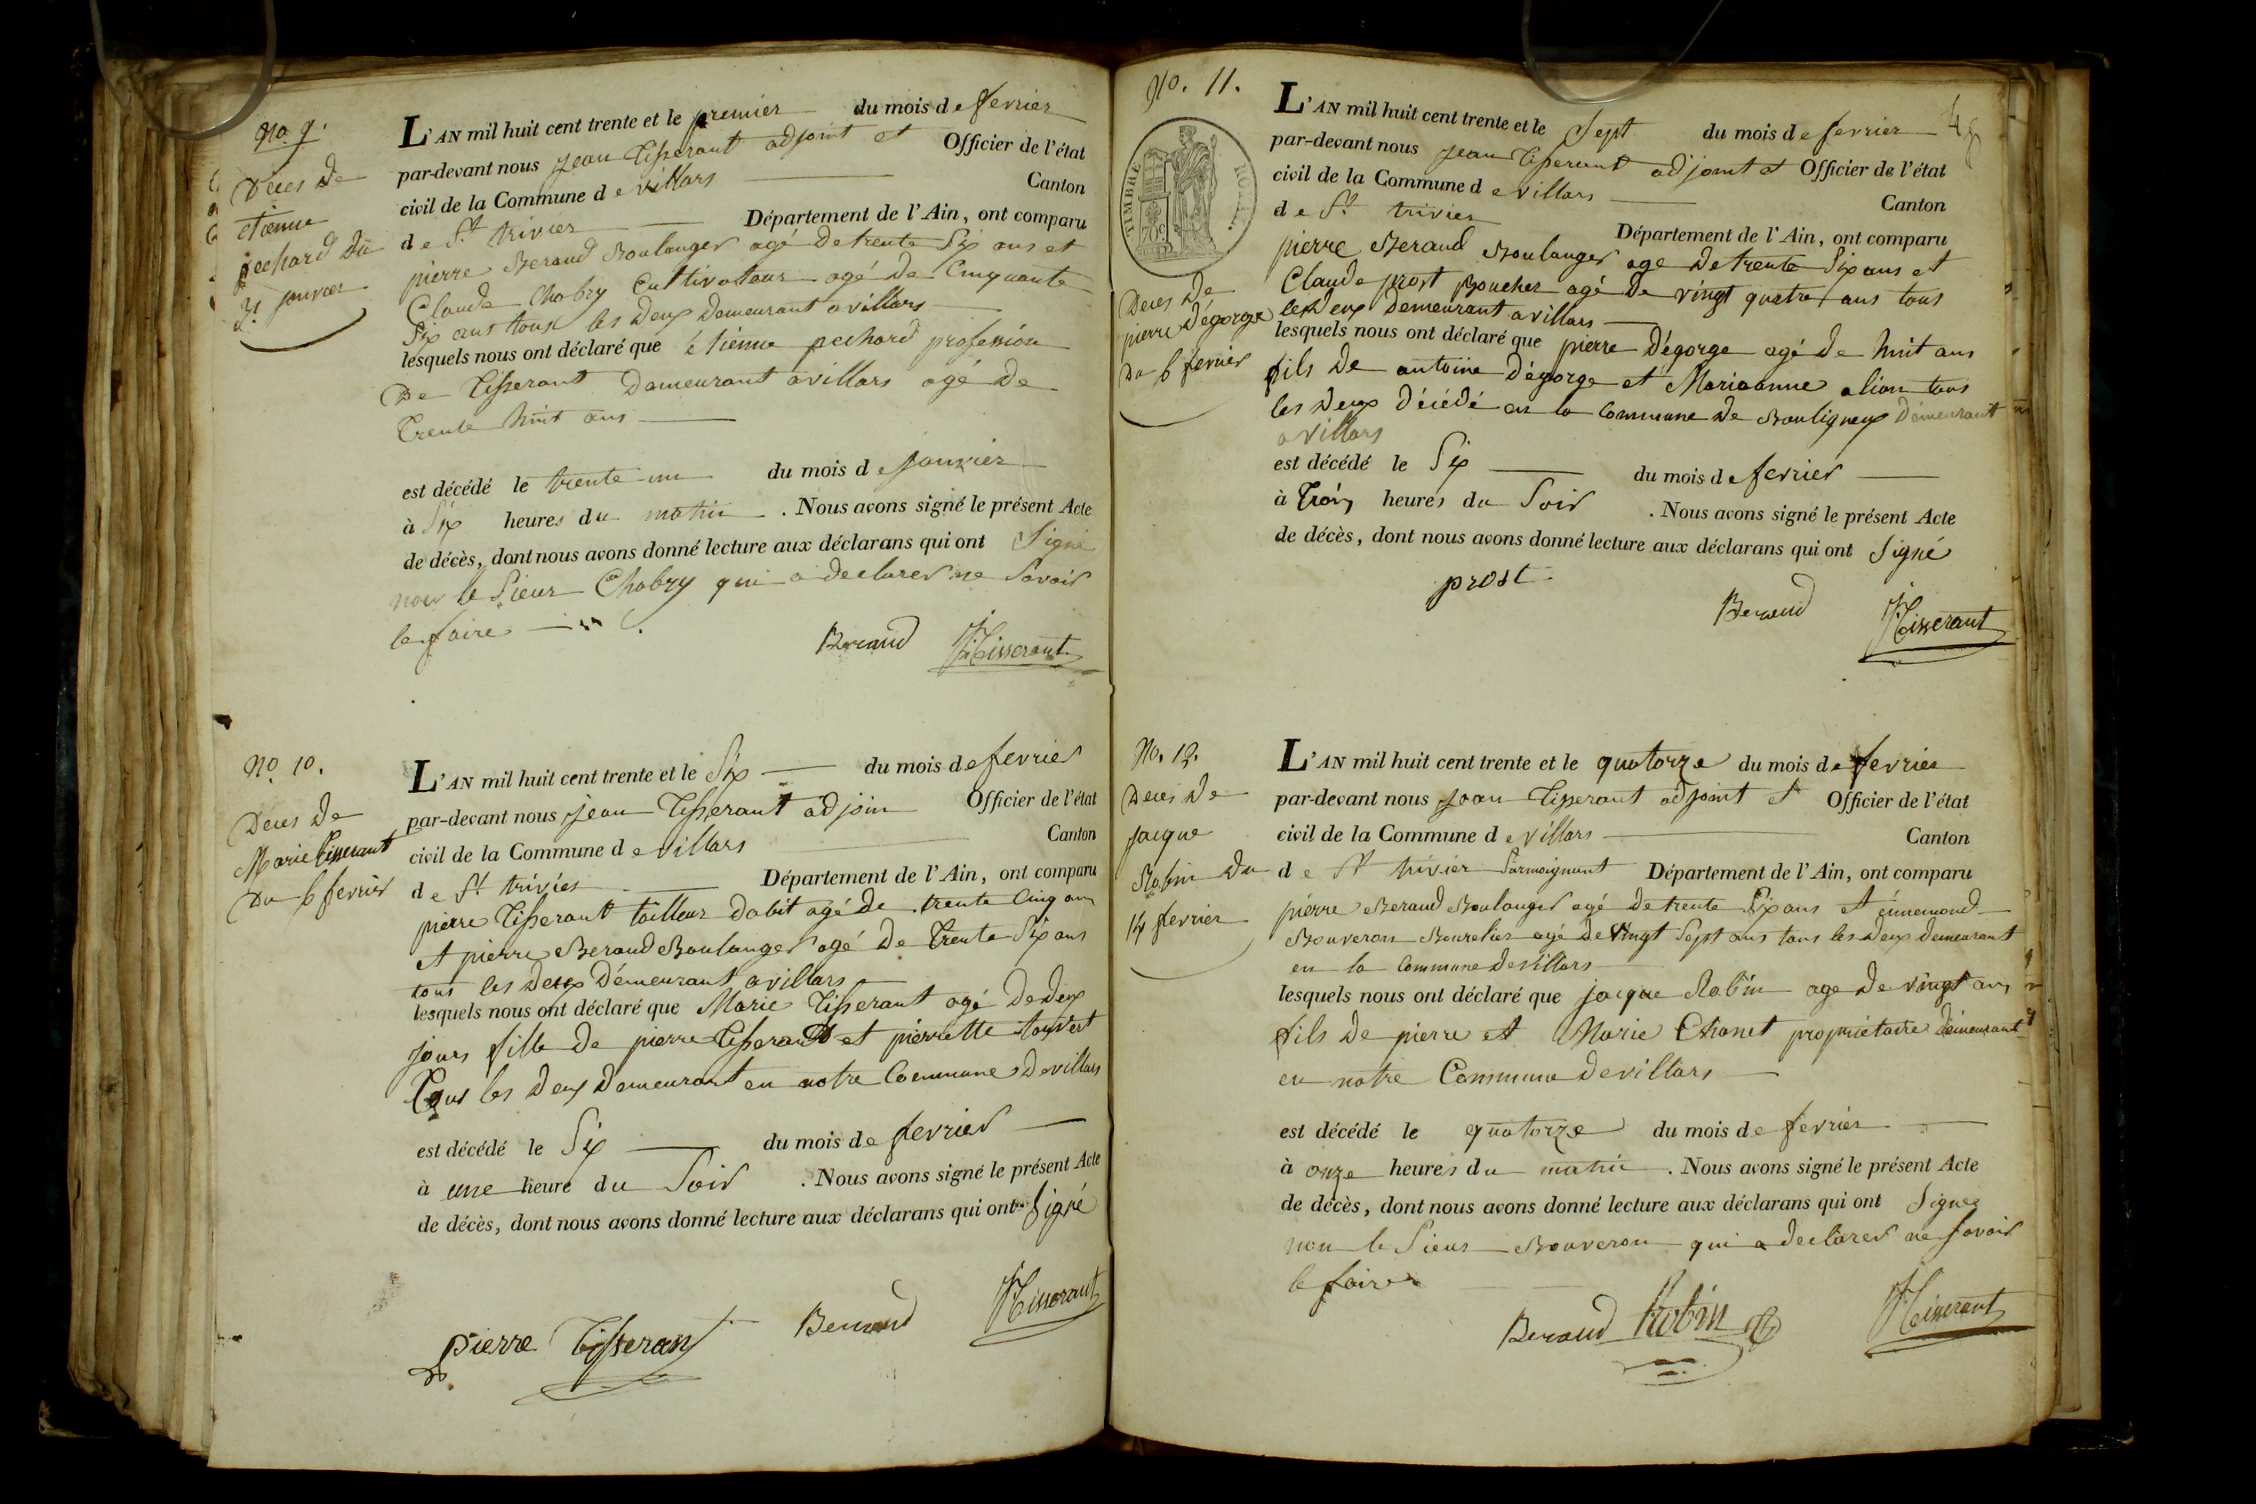 No. 9.
Déces de
etienne
pechard du
31 janvier
L'AN mil huit cent trente et le premier du mois de fevrier
par-devant nous jean Tisserant adjoint et Officier de l'état
civil de la Commune de villars Canton
de St. trivier Département de l'Ain, ont comparu
pierre Beraud Boulanger agé de trente Six ans et
Claude Chabry Cultivateur agé de Cinquante
Six ans tous les deux demeurant a villars
lesquels nous ont déclaré que étienne pechard profession
De Tisserant Demeurant a villars agé de
Trente huit ans
est décédé le trente un du mois de janvier
à Six heures du matin . Nous avons signé le présent Acte
de décès, dont nous avons donné lecture aux déclarans qui ont Signé
non le Sieur Chabry qui a declarer ne Savoir
le faire
Beraud JTisserant
No. 10.
Deces de
Marie Tisserant
Du 6 fevrier
L'AN mil huit cent trente et le Six du mois de fevrier
par-devant nous jean Tisserant adjoin Officier de l'état
civil de la Commune de villars Canton
de St. trivier Département de l'Ain, ont comparu
pierre Tisserant tailleur dabit agé de trente Cinq ans
et pierre Beraud Boulanger agé De Trente Six ans
tous les deux Démeurant a villars
lesquels nous ont déclaré que Marie Tisserant agé De deux
jours fille de pierre Tisserant et pierrette
Tous les deux demeurant en notre Commune de villars
est décédé le Six du mois de fevrier
à une heure du Soir . Nous avons signé le présent Acte
de décès, dont nous avons donné lecture aux déclarans qui ont Signé
Pierre Tisseran Beraud JTisserant
No. 11.
TIMBRE ROYAL
70c
Deces de
pierre Dégorge
Du 6 fevrier
L'AN mil huit cent trente et le Sept du mois de fevrier
par-devant nous jean Tisserant adjoint et Officier de l'état
civil de la Commune de villars Canton
de St. trivier Département de l'Ain, ont comparu
pierre Beraud Boulanger age de trente Six ans et
Claude prost Boucher agé De vingt quatre ans tous
les Deux demeurant a villars
lesquels nous ont déclaré que pierre Dégorge agé de huit ans
fils De antoine Dégorge et Marieanne alion tous
les Deux Décédé en la Commune de Bouligneux demeurant
a villars
est décédé le Six du mois de fevrier
à Trois heures du Soir . Nous avons signé le présent Acte
de décès, dont nous avons donné lecture aux déclarans qui ont Signé
prost Beraud JTisserant
No. 12.
Deces De
jacque
Robin Du
14 fevrier
L'AN mil huit cent trente et le quatorze du mois de fevrier
par-devant nous jean Tisserant adjoint et Officier de l'état
civil de la Commune de villars Canton
de St trivier Surmoignant Département de l'Ain, ont comparu
pierre Beraud Boulanger agé de trente Six ans et énnemond
Bouveron Bourelier agé de vingt Sept ans tous les Deux demeurant
en la Commune de villars
lesquels nous ont déclaré que jacque Robin age de vingt ans
fils De pierre et Marie Chanet propriétaire démeurant
en notre Commune de villars
est décédé le quatorze du mois de fevrier
à onze heures du matin . Nous avons signé le présent Acte
de décès, dont nous avons donné lecture aux déclarans qui ont Signez
non le Sieur Bouveron qui a declarer ne Savoir
le faire
Beraud Robin JTisserant